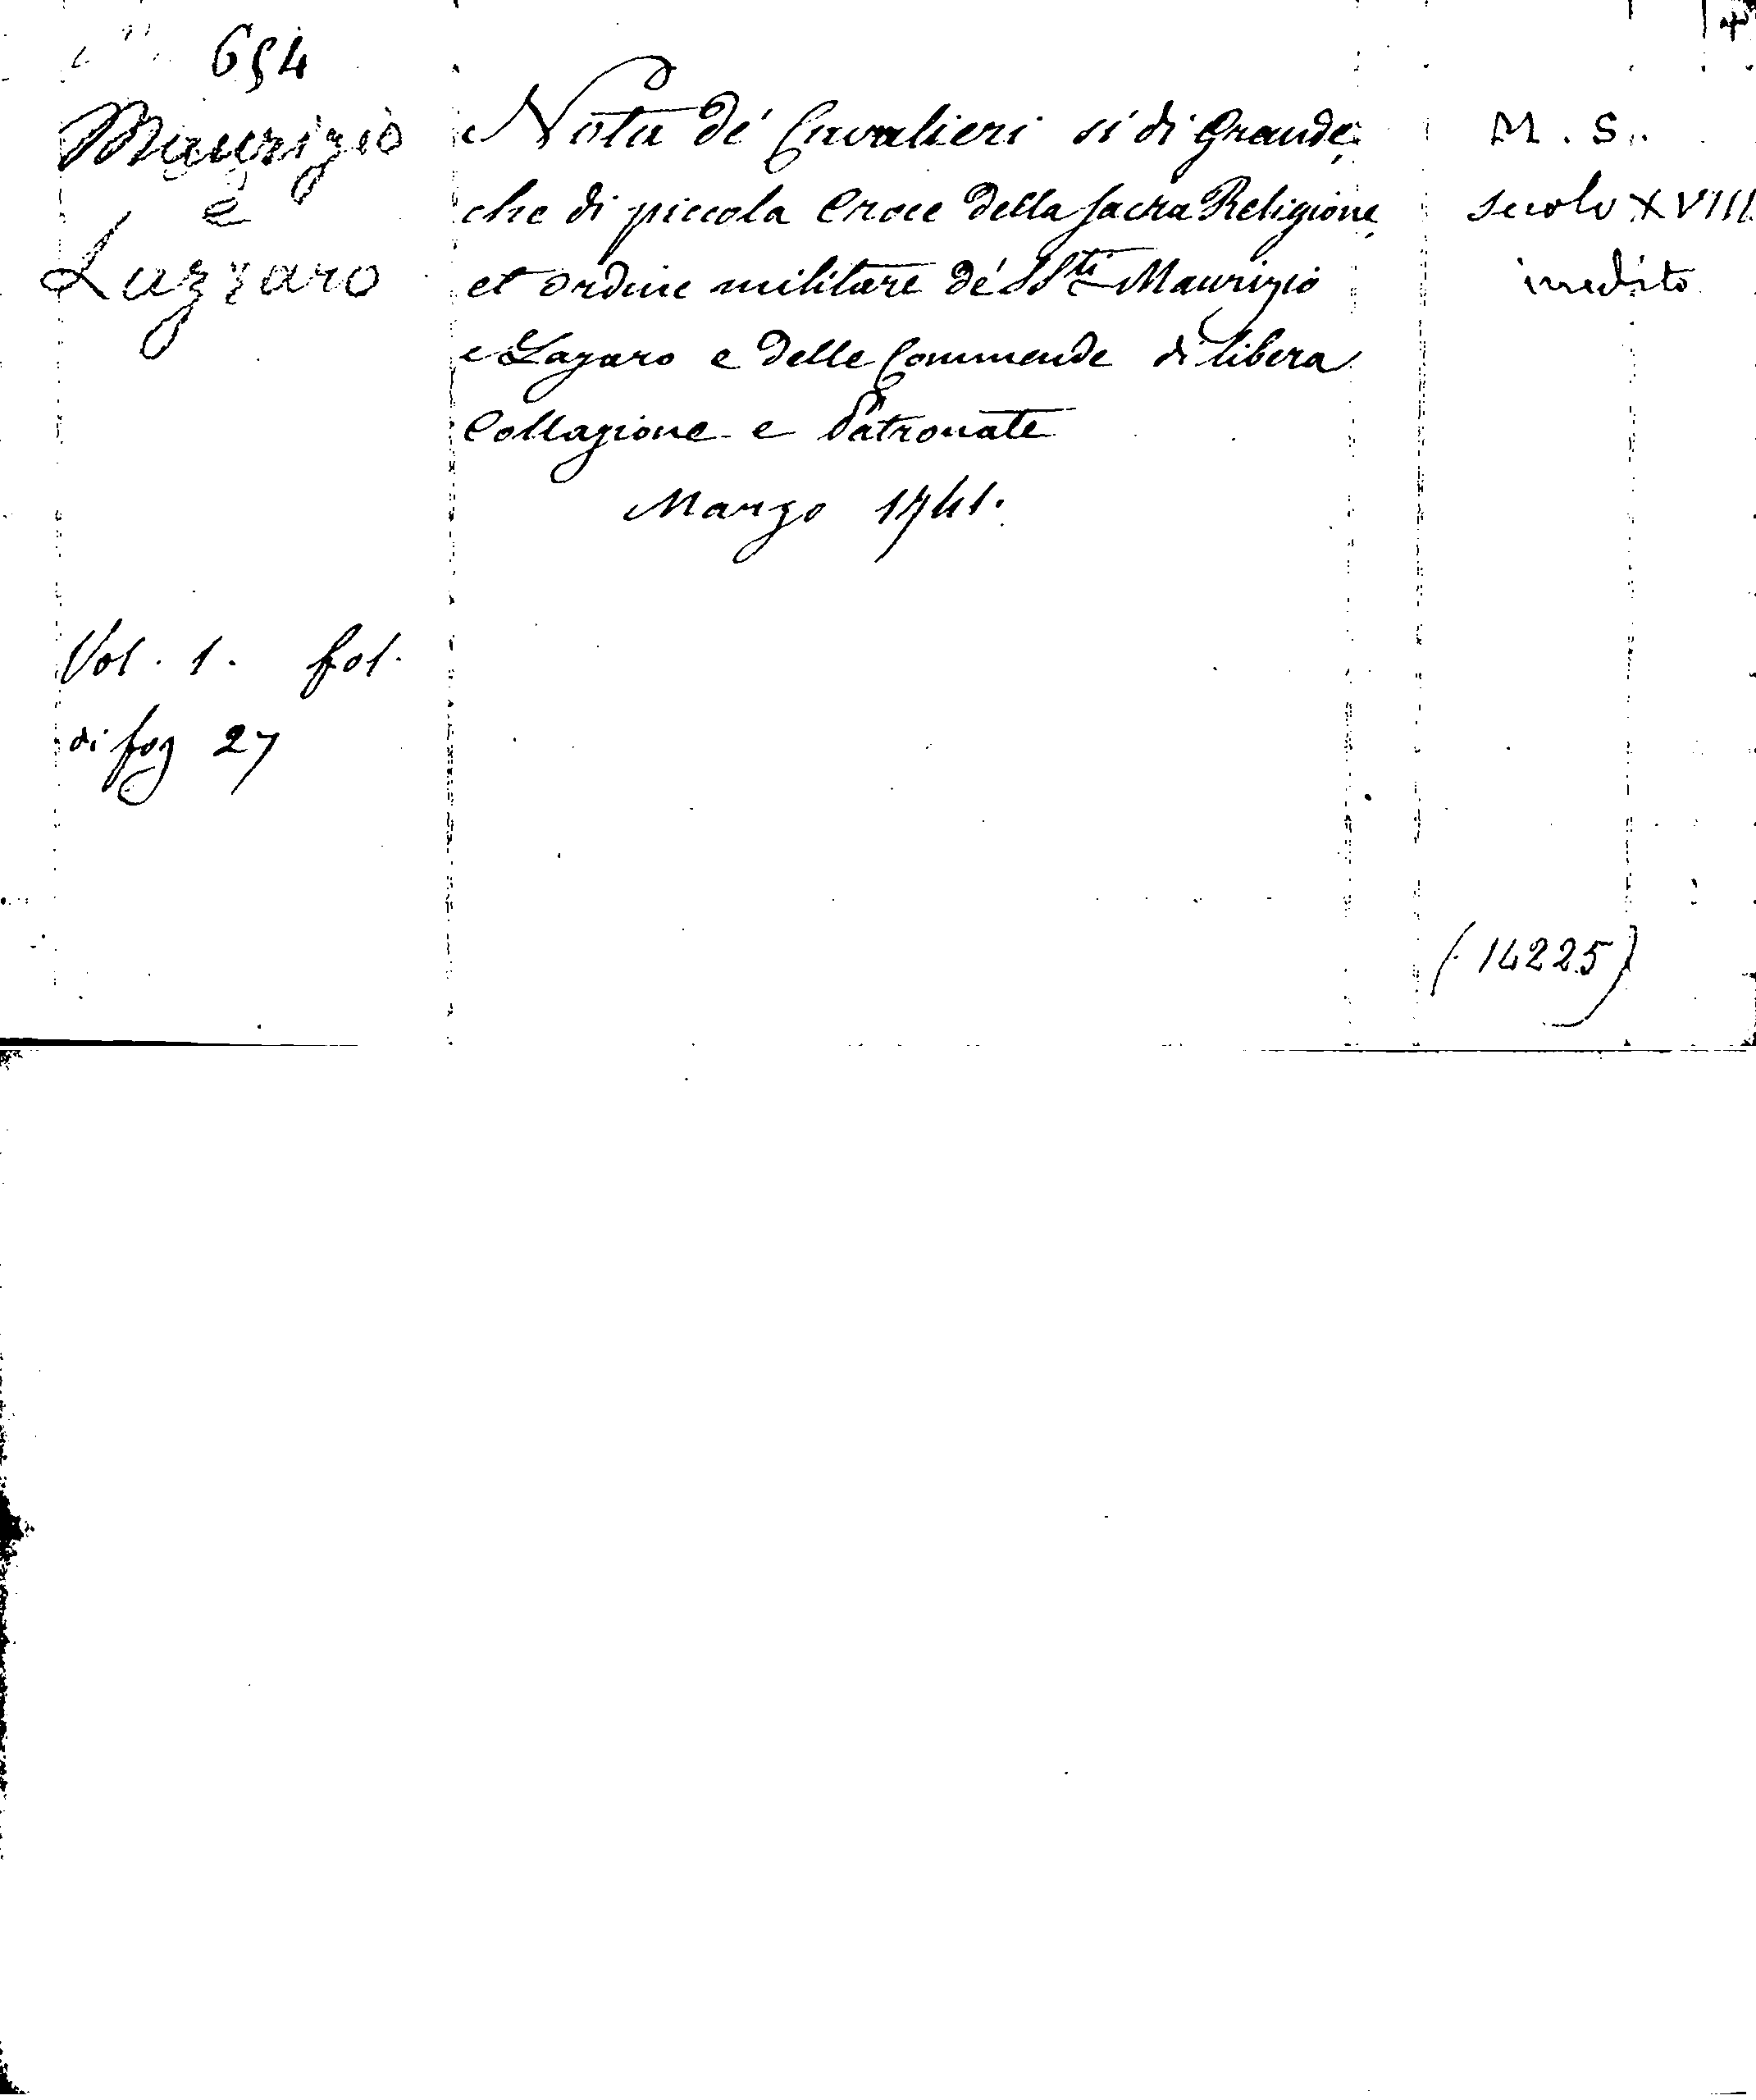 654
Maurizio
e
Lazzaro
Nota de' Cavalieri sì di Grande,
che di piccola Croce della sacra Religione,
et ordine militare de' SS.ti Maurizio
e Lazaro e delle Commende di libera
Collazione e Patronate
Marzo 1741.
Vol. 1. fol.
di fog 27
M. S.
secolo XVIII
inedito
(14225)